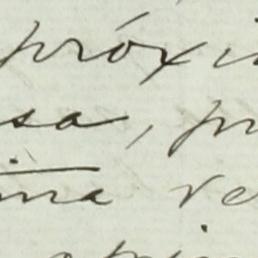 próxi
sa, pr
ina ve